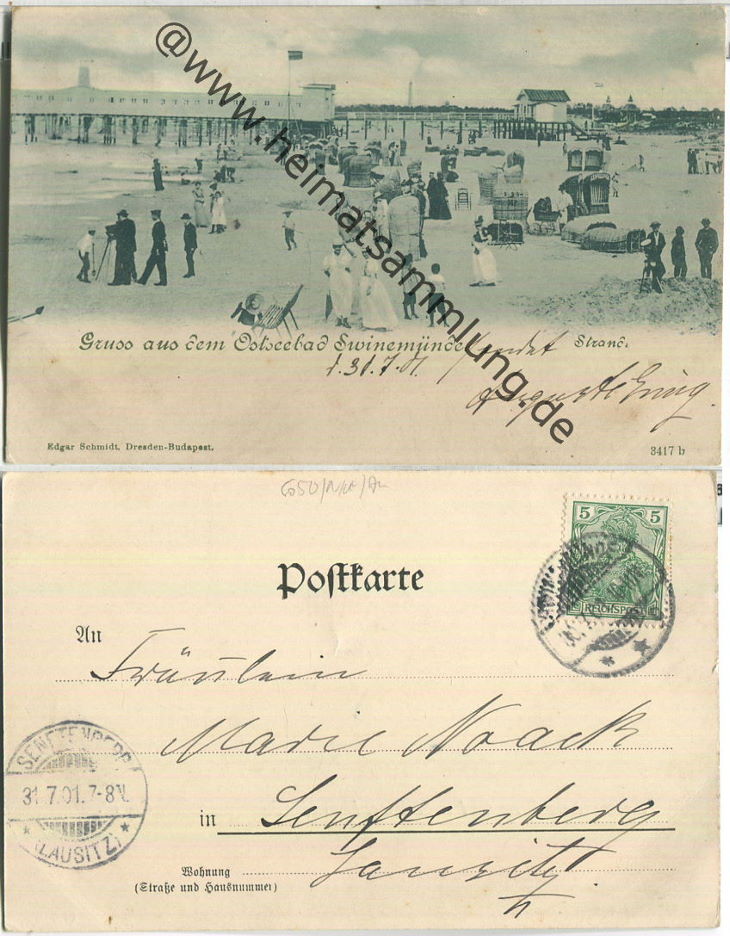 @www.heimatsammlung.de
Gruss aus dem Ostseebad Swinemünde
Strand.
d. 31.7.01. sendet
Edgar Schmidt, Dresden-Budapest.
3417 b
Postkarte
5 5
REICHSPOST
An
Fräulein
Marie Noack
in Senftenberg
Lausitz
Wohnung
(Straße und Hausnummer)
SENFTENBERG
31.7.01.7-8V.
* (LAUSITZ) *